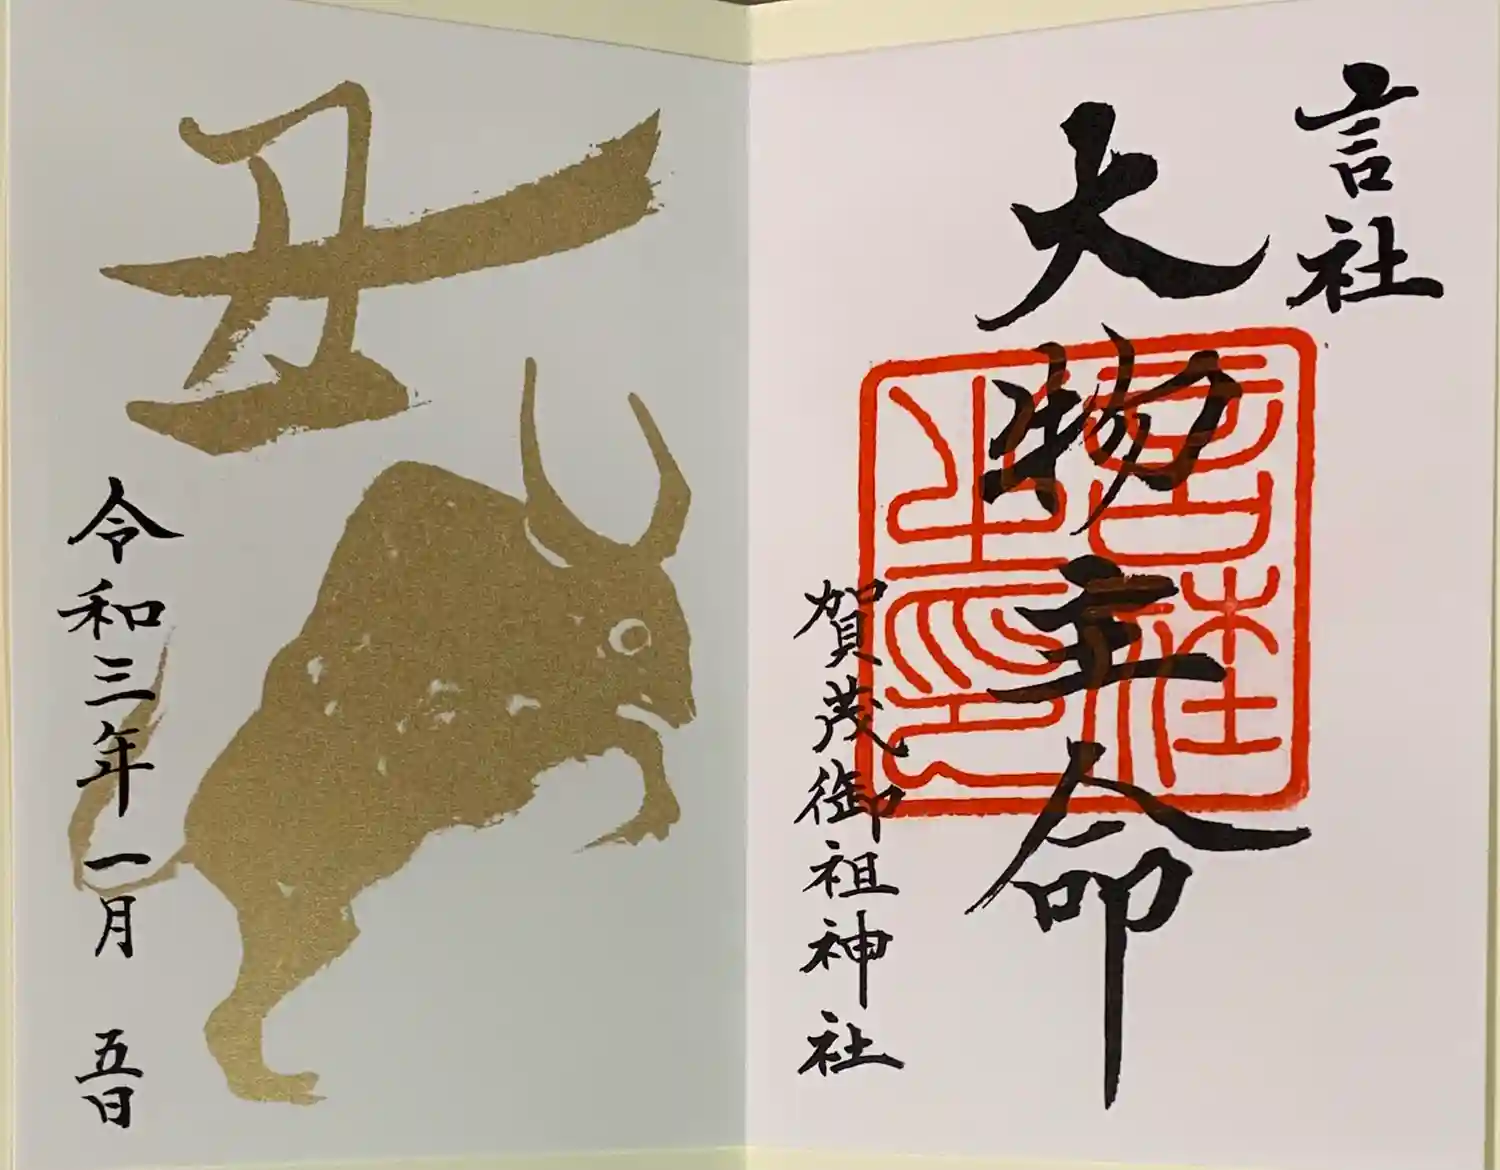 言社
大物主命
言社之印
賀茂御祖神社
丑
令和三年一月 五日